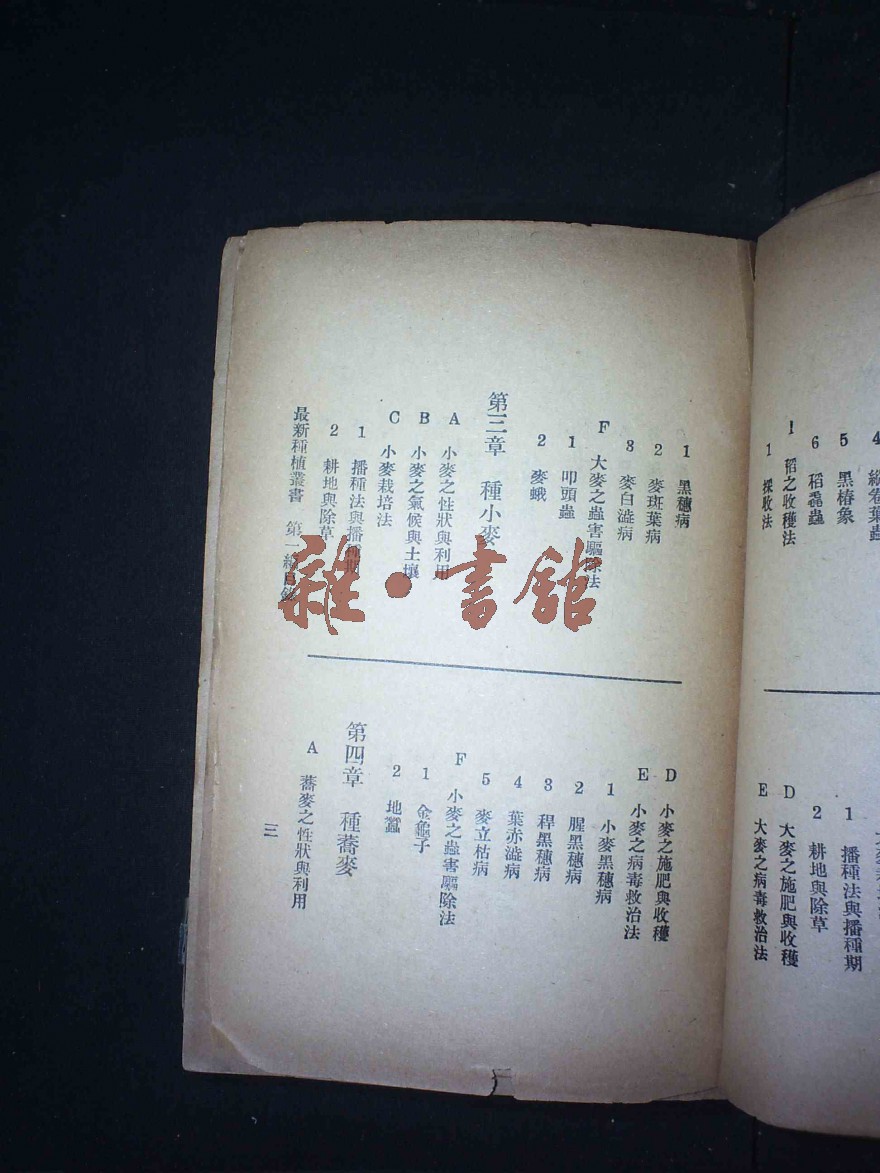 4
5 黑椿象
6 稻螽蟲
I 稻之收穫法
1 採收法
1 播種法與播種期
2 耕地與除草
D 大麥之施肥與收穫
E 大麥之病毒救治法
1 黑穗病
2 麥斑葉病
3 麥白澁病
F 大麥之蟲害驅除法
1 叩頭蟲
2 麥蛾
第三章 種小麥
A 小麥之性狀與利用
B 小麥之氣候與土壤
C 小麥栽培法
1 播種法與播種期
2 耕地與除草
最新種植叢書 第一編目錄
D 小麥之施肥與收穫
E 小麥之病毒救治法
1 小麥黑穗病
2 腥黑穗病
3 稈黑穗病
4 葉赤澁病
5 麥立枯病
F 小麥之蟲害驅除法
1 金龜子
2 地蠶
第四章 種蕎麥
A 蕎麥之性狀與利用
三
雜·書館